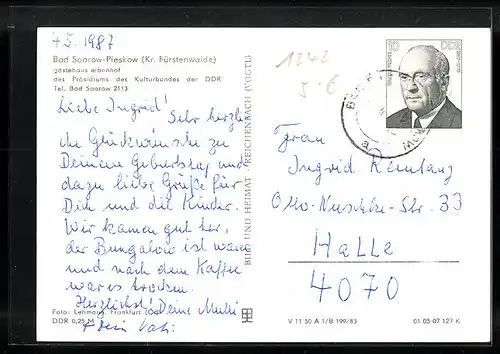 4.5.1987
Bad Saarow-Pieskow (Kr. Fürstenwalde)
gästehaus eibenhof
des Präsidiums des Kulturbundes der DDR
Tel. Bad Saarow 2113
Liebe Ingrid!
Sehr herzli-
che Glückwünsche zu
Deinem Geburtstag und
dazu liebe Grüße für
Dich und die Kinder.
Wir kamen gut her,
der Bungalow ist warm
und nach dem Kaffee
war es trocken.
Herzlichst! Deine Mutti
Foto: Lehmann, Frankfurt (Oder)
DDR 0,25 M
BILD UND HEIMAT · REICHENBACH (VOGTL)
1242
5,- €
10 DDR
Frau
Ingrid
Otto-Nuschke-Str. 33
Halle
4070
V 11 50 A 1/B 199/83
01 05 07 127 K